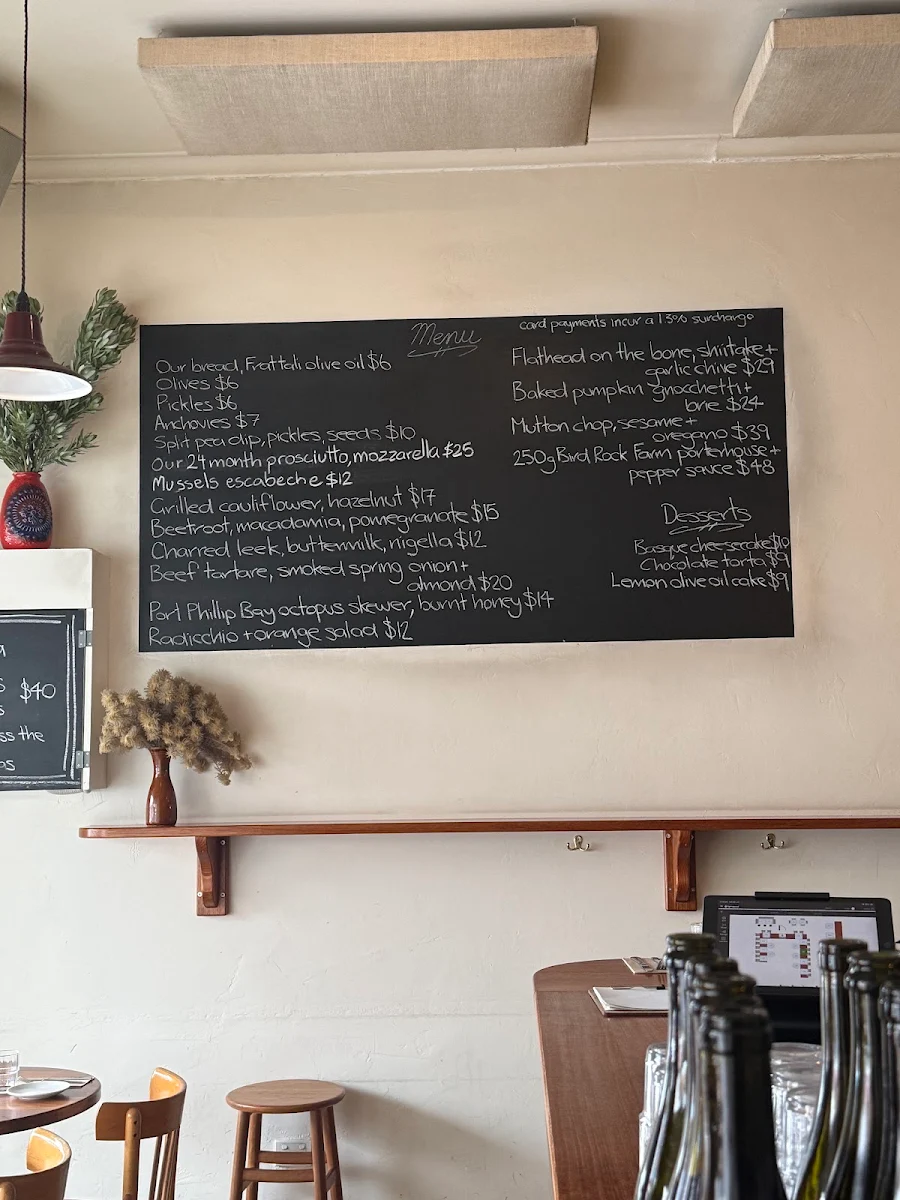 Menu
Our bread, Frattali olive oil $6
Olives $6
Pickles $6
Anchovies $7
Split pea dip, pickles, seeds $10
Our 24 month prosciutto, mozzarella $25
Mussels escabeche $12
Grilled cauliflower, hazelnut $17
Beetroot, macadamia, pomegranate $15
Charred leek, buttermilk, nigella $12
Beef tartare, smoked spring onion +
almond $20
Port Phillip Bay octopus skewer, burnt honey $14
Radicchio + orange salad $12
card payments incur a 1.3% surcharge
Flathead on the bone, shiitake +
garlic chive $29
Baked pumpkin gnocchetti +
brie $24
Mutton chop, sesame +
oregano $39
250g Bird Rock Farm porterhouse +
pepper sauce $48
Desserts
Basque cheesecake $10
Chocolate torta $9
Lemon olive oil cake $9
$40
the